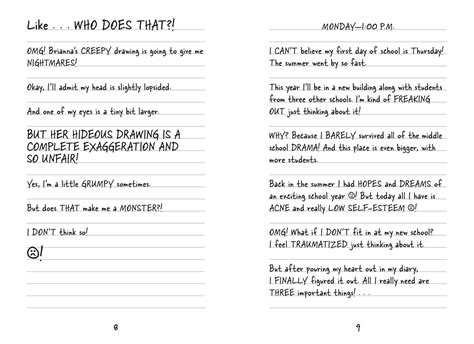 Like . . . WHO DOES THAT?!
OMG! Brianna's CREEPY drawing is going to give me
NIGHTMARES!
Okay, I'll admit my head is slightly lopsided.
And one of my eyes is a tiny bit larger.
BUT HER HIDEOUS DRAWING IS A
COMPLETE EXAGGERATION AND
SO UNFAIR!
Yes, I'm a little GRUMPY sometimes.
But does THAT make me a MONSTER?!
I DON'T think so!
☹!
8
MONDAY—1:00 P.M.
I CAN'T believe my first day of school is Thursday!
The summer went by so fast.
This year I'll be in a new building along with students
from three other schools. I'm kind of FREAKING
OUT just thinking about it!
WHY? Because I BARELY survived all of the middle
school DRAMA! And this place is even bigger, with
more students.
Back in the summer I had HOPES and DREAMS of
an exciting school year ☺! But today all I have is
ACNE and really LOW SELF-ESTEEM ☹!
OMG! What if I DON'T fit in at my new school?
I feel TRAUMATIZED just thinking about it.
But after pouring my heart out in my diary,
I FINALLY figured it out. All I really need are
THREE important things! . . .
9